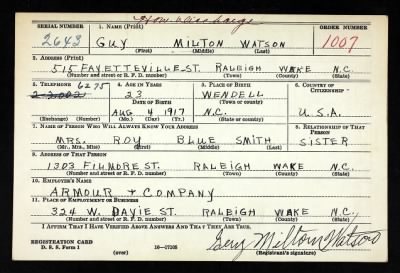 Hon. Discharge
SERIAL NUMBER 1. NAME (Print) ORDER NUMBER
2643 GUY MILTON WATSON 1007
(First) (Middle) (Last)
2. ADDRESS (Print)
515 FAYETTEVILLE ST. RALEIGH WAKE N.C.
(Number and street or R. F. D. number) (Town) (County) (State)
3. TELEPHONE 4. AGE IN YEARS 5. PLACE OF BIRTH 6. COUNTRY OF CITIZENSHIP
6275
2-3002 23 WENDELL
DATE OF BIRTH (Town or county)
AUG 4 1917 N.C. U.S.A.
(Exchange) (Number) (Mo.) (Day) (Yr.) (State or country)
7. NAME OF PERSON WHO WILL ALWAYS KNOW YOUR ADDRESS 8. RELATIONSHIP OF THAT PERSON
MRS. ROY BLUE SMITH SISTER
(Mr., Mrs., Miss) (First) (Middle) (Last)
9. ADDRESS OF THAT PERSON
1303 FILMORE ST. RALEIGH WAKE N.C.
(Number and street or R. F. D. number) (Town) (County) (State)
10. EMPLOYER'S NAME
ARMOUR + COMPANY
11. PLACE OF EMPLOYMENT OR BUSINESS
324 W. DAVIE ST. RALEIGH WAKE N.C.
(Number and street or R. F. D. number) (Town) (County) (State)
I AFFIRM THAT I HAVE VERIFIED ABOVE ANSWERS AND THAT THEY ARE TRUE.
REGISTRATION CARD
D. S. S. Form 1 (over) 16—17105
Guy Milton Watson
(Registrant's signature)